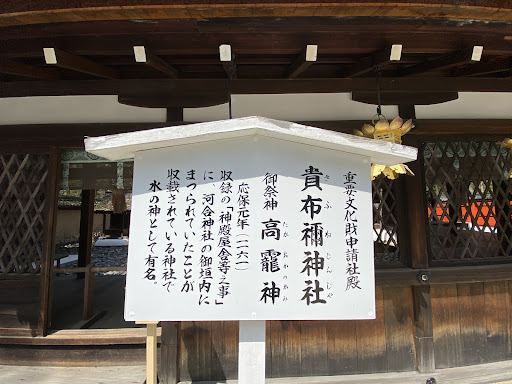 重要文化財申請社殿
貴布禰神社
きふねじんじゃ
御祭神 高龗神
たかおかみのかみ
応保元年(一一六一)
収録の「神殿屋舎等之事」
に、河合神社の御垣内に
まつられていたことが
収載されている神社で
水の神として有名。